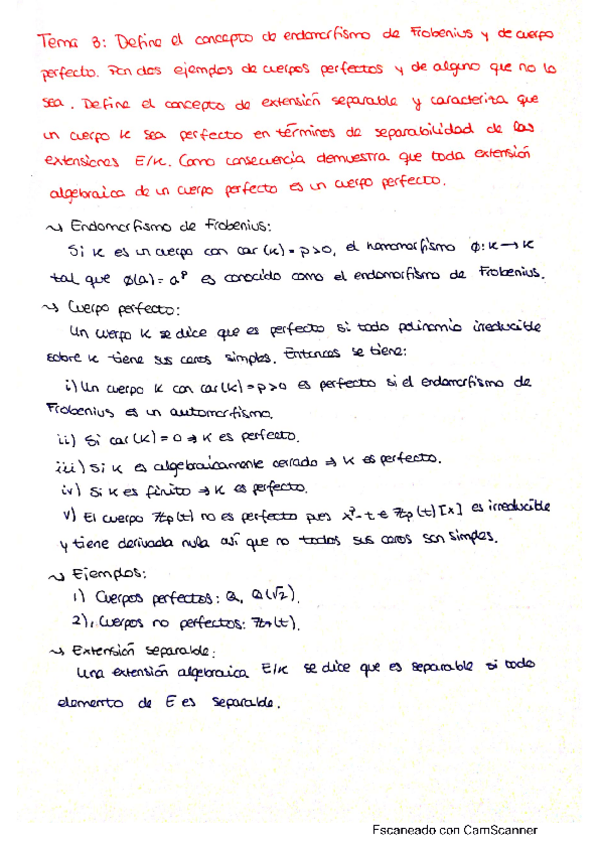 Tema 3: Define el concepto de endomorfismo de Frobenius y de cuerpo
perfecto. Pon dos ejemplos de cuerpos perfectos y de alguno que no lo
sea. Define el concepto de extensión separable y caracteriza que
un cuerpo K sea perfecto en términos de separabilidad de las
extensiones E/K. Como consecuencia demuestra que toda extensión
algebraica de un cuerpo perfecto es un cuerpo perfecto.
~> Endomorfismo de Frobenius:
Si K es un cuerpo con car(K)=p>0, el homomorfismo ϕ: K → K
tal que ϕ(a)=a^p es conocido como el endomorfismo de Frobenius.
~> Cuerpo perfecto:
Un cuerpo K se dice que es perfecto si todo polinomio irreducible
sobre K tiene sus ceros simples. Entonces se tiene:
i) Un cuerpo K con car(K)=p>0 es perfecto si el endomorfismo de
Frobenius es un automorfismo.
ii) Si car(K)=0 ⇒ K es perfecto.
iii) Si K es algebraicamente cerrado ⇒ K es perfecto.
iv) Si K es finito ⇒ K es perfecto.
v) El cuerpo ℤp(t) no es perfecto pues x^p-t ∈ ℤp(t)[x] es irreducible
y tiene derivada nula así que no todos sus ceros son simples.
~> Ejemplos:
1) Cuerpos perfectos: ℚ, ℚ(√2).
2) Cuerpos no perfectos: ℤp(t).
~> Extensión separable:
Una extensión algebraica E/K se dice que es separable si todo
elemento de E es separable.
Escaneado con CamScanner